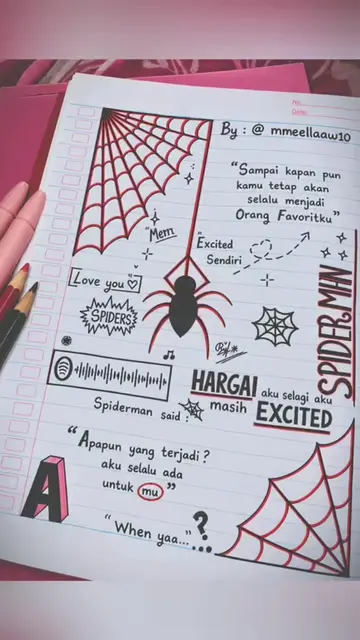 No.
Date.
By : @ mmeellaaw10
"Sampai kapan pun
kamu tetap akan
selalu menjadi
Orang Favoritku"
"Mem"
"Excited
Sendiri
Love you
SPIDERS
SPIDERMAN
HARGAI aku selagi aku
masih EXCITED
Spiderman said :
"Apapun yang terjadi?
aku selalu ada
untuk mu"
A
"When yaa..."?